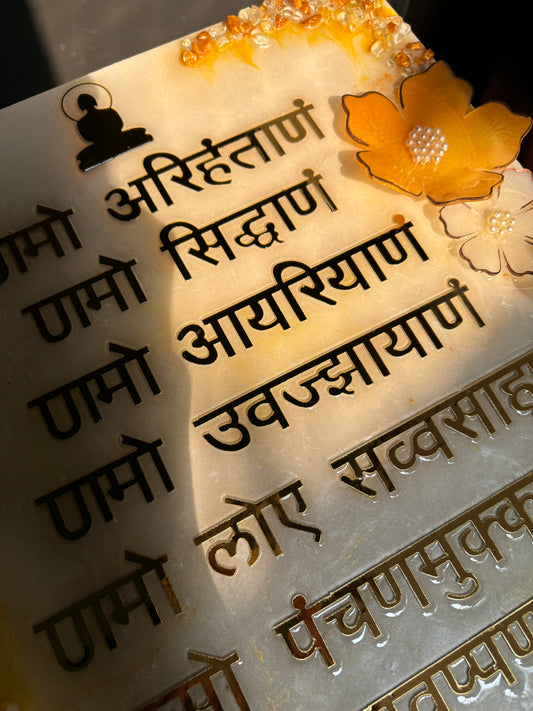 णमो अरिहंताणं
णमो सिद्धाणं
णमो आयरियाणं
णमो उवज्झायाणं
णमो लोए सव्वसाहू
मो पंचणमुक्क
वप्पण